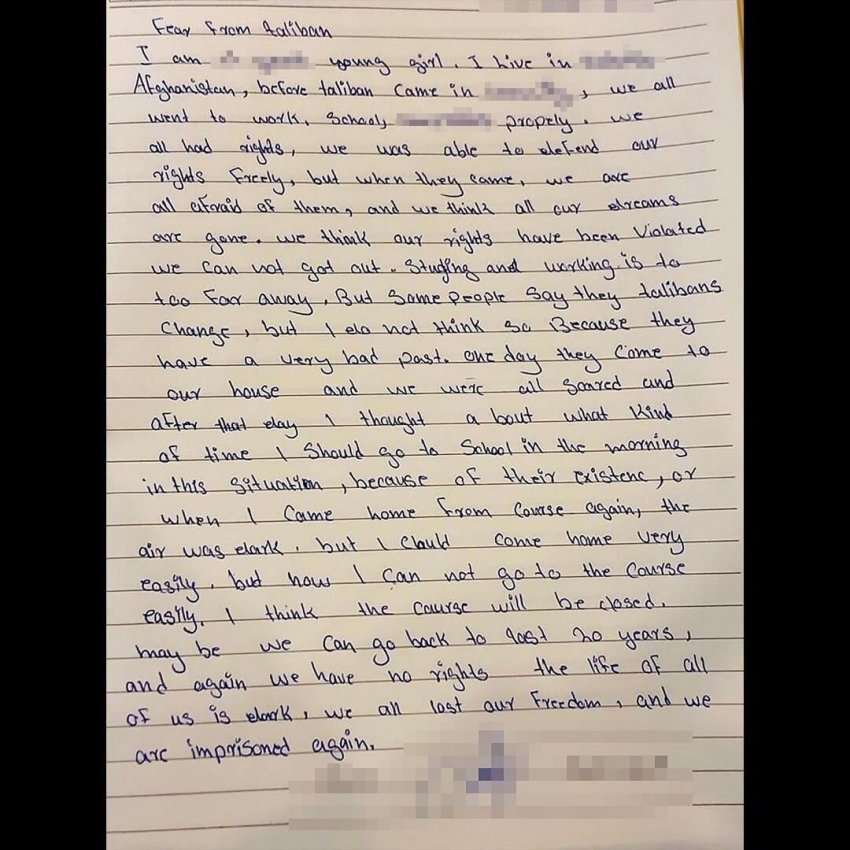 Fear From taliban
I am young girl. I live in
Afghanistan, before taliban Came in , we all
went to work, School, propely. we
all had rights, we was able to defend our
rights Freely, but when they came, we are
all afraid of them, and we think all our dreams
are gone. we think our rights have been Violated
we can not got out. Studing and working is to
too Far away. But Some people Say they talibans
Change, but I do not think So Because they
have a very bad past. one day they Come to
our house and we were all Scared and
after that day I thought a bout what Kind
of time I Should go to School in the morning
in this Situation, because of their existenc, or
when I Came home From Course again, the
air was dark. but I Could come home very
easily. but now I Can not go to the Course
easily. I think the Course will be closed.
may be we Can go back to last 20 years,
and again we have no rights the life of all
of us is dark, we all lost our Freedom, and we
are imprisoned again.